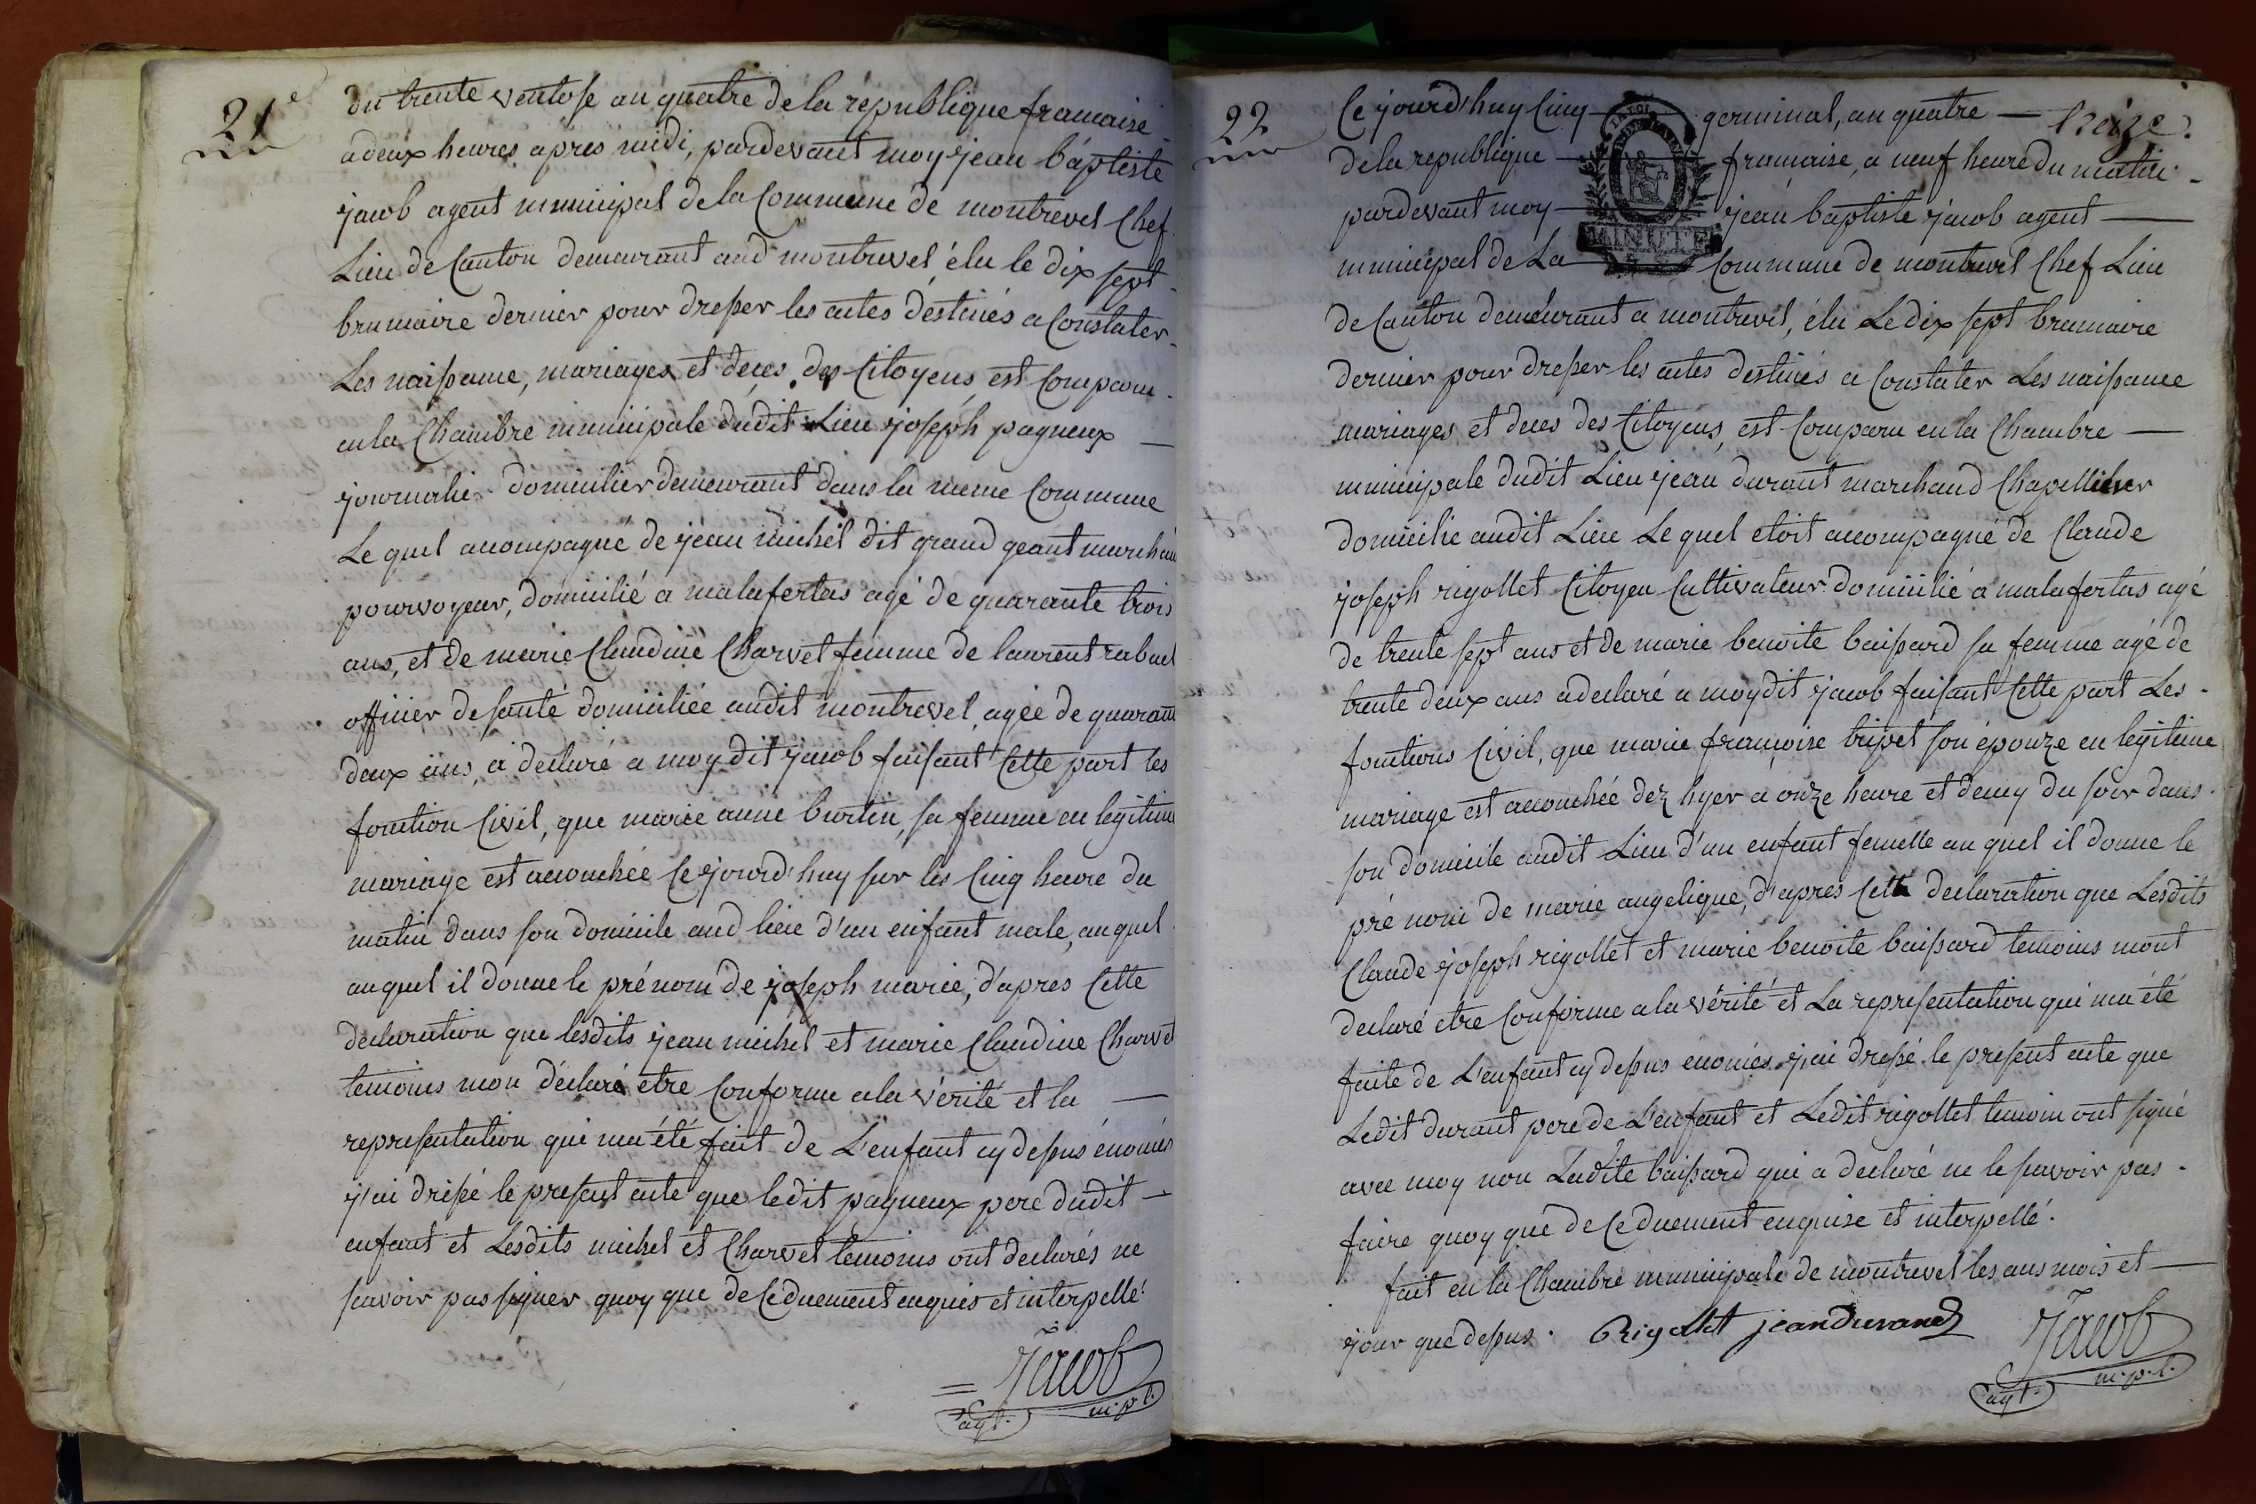 21e
du trente ventose an quatre de la république francaise
a deux heures apres midi, pardevant moy jean baptiste
jacob agent municipal de la Commune de montrevel Chef
Lieu de Canton demeurant aud montrevel, élu le dix sept
brumaire dernier pour dresser les actes destinés a Constater
Les naissance, mariages et deces des Citoyens, est Comparu
en la Chambre municipale dudit Lieu joseph pagneux
journalie domicilier demeurant dans la meme Commune
Le quel acompagné de jean michel dit grand geant marchand
pourvoyeur, domicilié a malafertas agé de quarante trois
ans, et de marie Claudine Charvet femme de laurent rabuel
officier de santé domiciliée audit montrevel, agée de quarante
deux ans, a declaré a moy dit jacob faisant Cette part les
fonction Civil, que marie anne burtin, sa femme en legitime
mariage est acouchée Ce jourd'huy sur les Cinq heure du
matin dans son domicile aud lieu d'un enfant male, au quel
auquel il donne le prénom de joseph marie, d'apres Cette
declaration que lesdits jean michel et marie Claudine Charvet
temoins mon déclaré etre Conforme a la vérité et la
representation qui ma été fait de L'enfant cy dessus énomés
j'ai dressé le present acte que ledit pagneux pere dudit
enfant et Lesdits michel et Charvet temoins ont declarés ne
scavoir pas signer quoy que de Ce duement enquis et interpellé
Jacob
agt. m.p.l.
22
treize.
Ce jourd'huy Cinq germinal, an quatre
de la republique francaise, a neuf heure du matin
LA LOI
MINUTE
pardevant moy jean baptiste jacob agent
municipal de La Commune de montrevel Chef Lieu
de Canton demeurant a montrevel, élu Le dix sept brumaire
dernier pour dresser les actes destinés a Constater Les naissance
mariages et deces des Citoyens, est Comparu en la Chambre
municipale dudit Lieu jean durant marchand Chapellier
domicilie audit Lieu Le quel etoit acompagné de Claude
joseph rigollet Citoyen Cultivateur domicilié a malafertas agé
de trente sept ans et de marie benoite baissard sa femme agé de
trente deux ans a declaré a moy dit jacob faisant Cette part Les
fonctions Civil, que marie françoise tripet son épouze en legitime
mariage est acouchée dez hyer a onze heure et demy du soir dans
son domicile audit Lieu d'un enfant femelle au quel il donne le
pré nom de marie angelique, d'apres Cette declaration que Lesdits
Claude joseph rigollet et marie benoite baissard temoins mont
declaré etre Conforme a la vérité et La representation qui ma été
faite de L'enfant cy dessus enomés j'ai dressé le present acte que
Ledit durant pere de L'enfant et Ledit rigollet temoin ont signé
avec moy non Ladite baissard qui a declaré ne le scavoir pas
faire quoy que de Ce duement enquise et interpellé.
fait en la Chambre municipale de montrevel les ans mois et
jour que dessus. Rigollet jean Durand Jacob
agt. m.p.l.